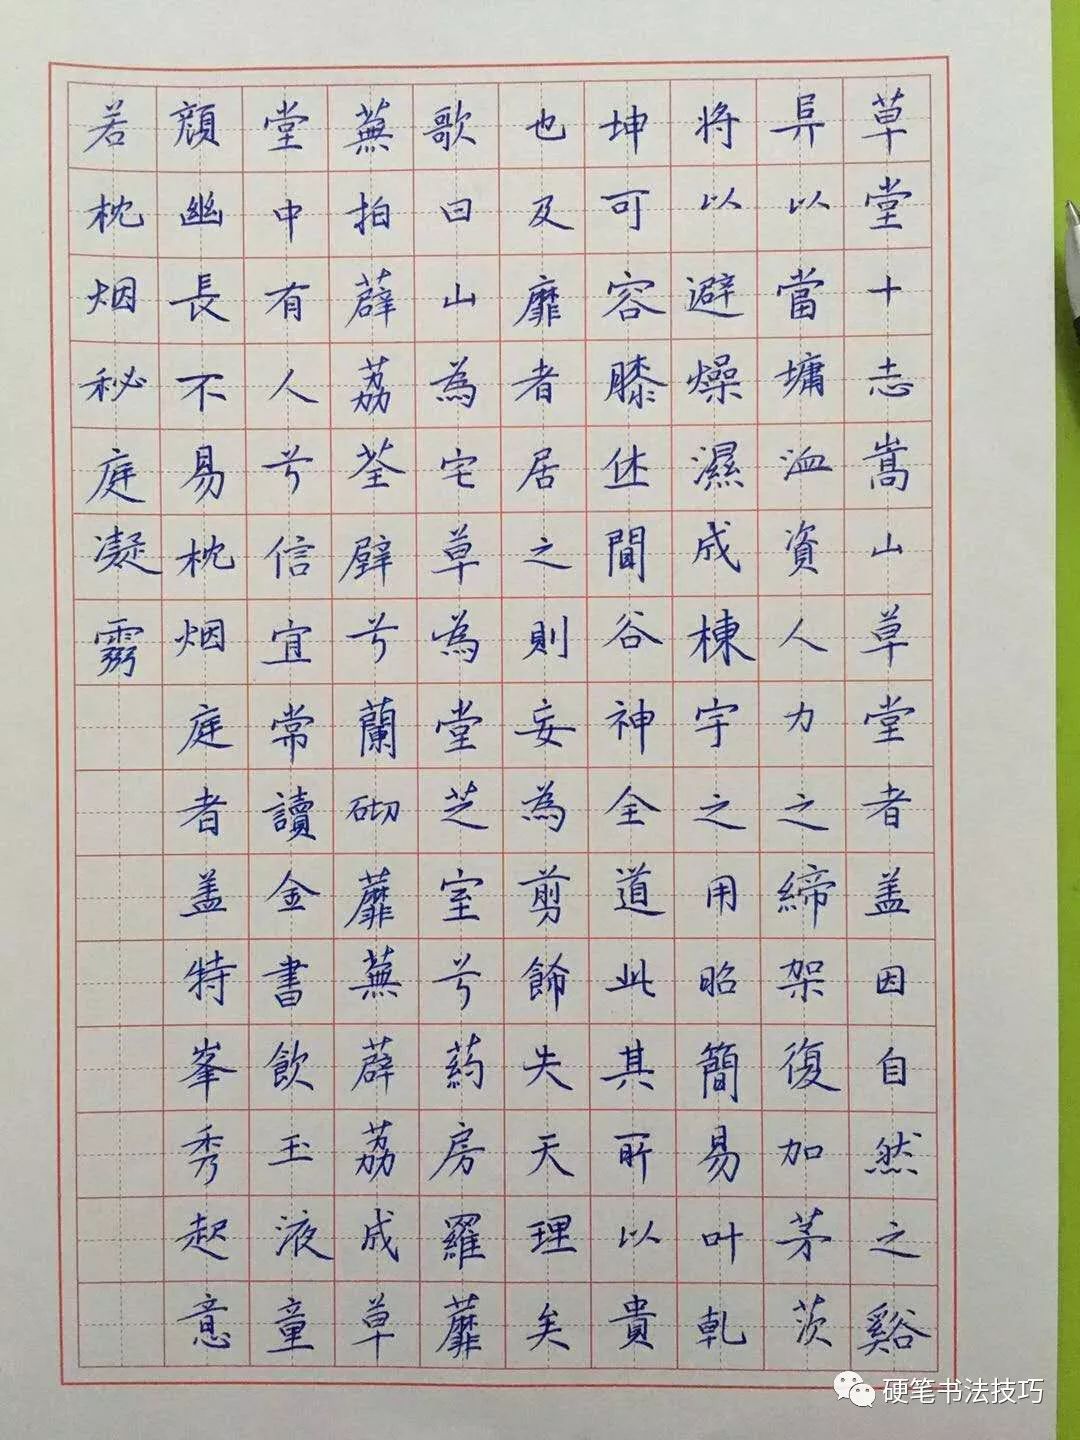 草堂十志嵩山草堂者盖因自然之谿
阜以當墉洫資人力之締架復加茅茨
将以避燥濕成棟宇之用昭簡易叶乹
坤可容膝休閒谷神全道此其所以貴
也及靡者居之則妄為剪餙失天理矣
歌曰山為宅草為堂芝室兮葯房羅蘼
蕪拍薜荔荃壁兮蘭砌蘼蕪薜荔成草
堂中有人兮信宜常讀金書飲玉液童
顔幽長不易枕烟庭者盖特峯秀起意
若枕烟秘庭凝
硬笔书法技巧